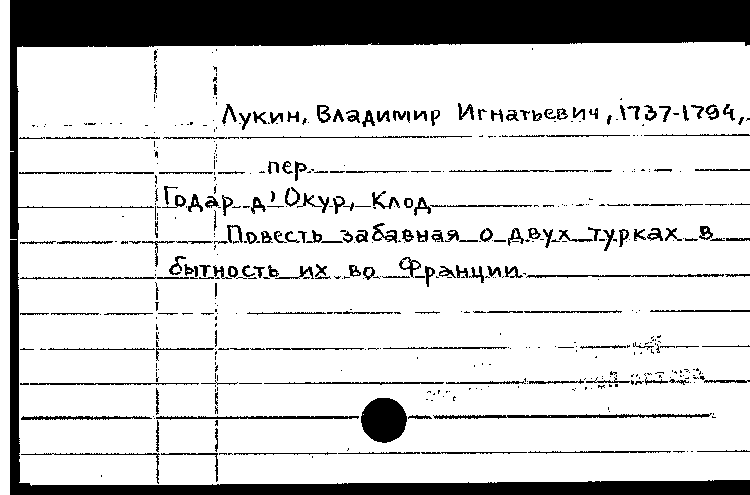 Лукин, Владимир Игнатьевич, 1737-1794,
пер.
Годар д'Окур, Клод
Повесть забавная о двух турках в
бытность их во Франции